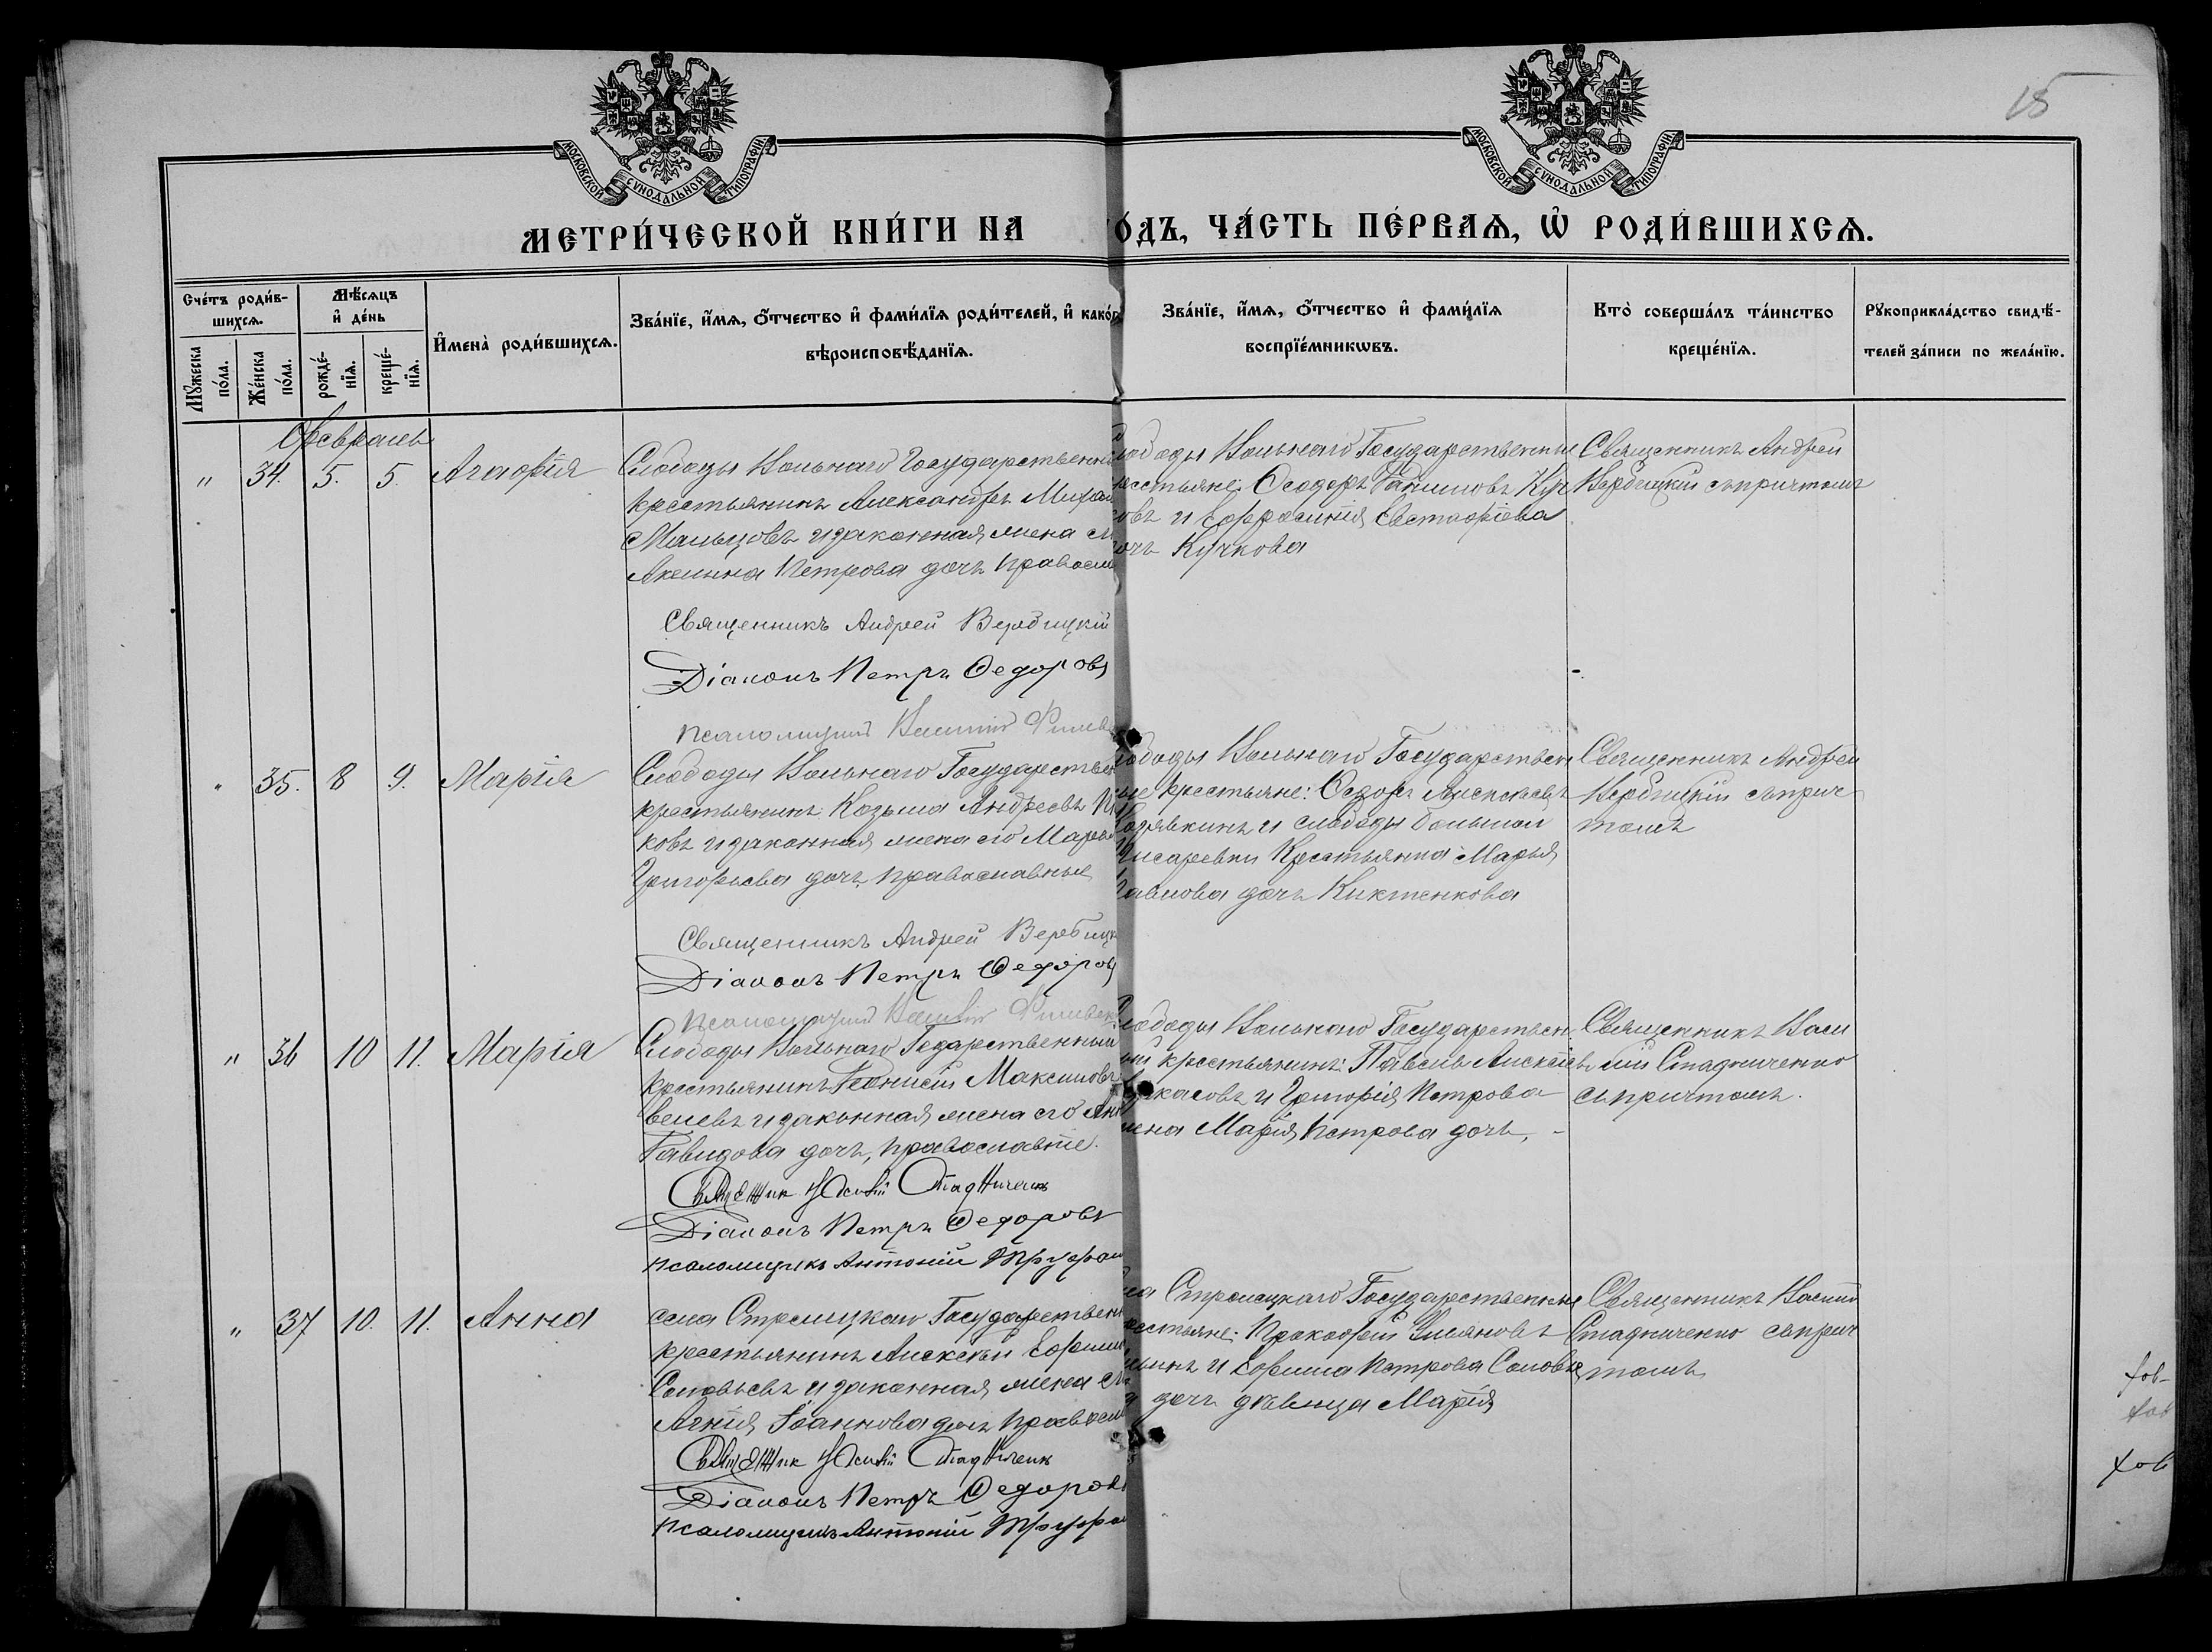 МОСКОВСКОЙ СѴНОДАЛЬНОЙ ТИПОГРАФІИ
МОСКОВСКОЙ СѴНОДАЛЬНОЙ ТИПОГРАФІИ
15
МЕТРИ́ЧЕСКОЙ КНИ́ГИ НА
О́ДЪ, ЧА́СТЬ ПЕ́РВАѦ, Ѡ҆ РОДИ́ВШИХСѦ.
Сче́тъ роди́в-
шихсѧ.
Мꙋ́жеска по́ла.
Же́нска по́ла.
Мѣ́сѧцъ
и҆ де́нь
рожде́-
нїѧ.
креще́-
нїѧ.
И҆мена̀ роди́вшихсѧ.
Зва́нїе, и҆́мѧ, ѻ҆́тчество и҆ фами́лїѧ роди́телей, и҆ како́г
вѣроисповѣ́данїѧ.
Зва́нїе, и҆́мѧ, ѻ҆́тчество и҆ фами́лїѧ
воспрїе́мникѡвъ.
Кто̀ соверша́лъ та́инство
креще́нїѧ.
Рꙋкоприкла́дство свидѣ́-
телей за́писи по жела́нїю.
Февраль
" 34. 5. 5. Агафія
Слободы Вольнаго Государственный
крестьянинъ Александръ Миха
Мальцовъ и законная жена
Акилина Петрова дочь правосл
Священникъ Андрей Вербицкій
Діаконъ Петръ Федоровъ
псаломщикъ Василій
лободы Вольнаго Государственные
рестьяне: Ѳеодоръ Куч
овъ и Ефросинія Евстафіева
очь Кучкова
Священникъ Андрей
Вербицкій съ причтомъ
" 35. 8 9. Марія
Слободы Вольнаго Государствен
крестьянинъ Козьма Андреевъ
ковъ и законная жена его Марѳа
Григорьева дочь, православные
Священникъ Андрей Вербицк
Діаконъ Петръ Федоровъ
псаломщикъ Василій
лободы Вольнаго Государствен
ные крестьяне: Ѳедоръ Алексѣевъ
и слободы Большой
Писаревки Крестьянка Марья
Павлова дочь Киктенкова
Священникъ Андрей
Вербицкій съ прич
томъ
" 36 10 11. Марія
Слободы Вольнаго Гсдарственный
крестьянинъ Діонисій Максимовъ
велевъ и законная жена его Ан
Давидова дочь, православные.
Священник Василій Стадниченк
Діаконъ Петръ Федоровъ
псаломщикъ Антоній Труфан
лободы Вольнаго Государствен
ный крестьянинъ: Павелъ Алексѣев
касовъ и Григорія Петрова
жена Марія Петрова дочь, -
Священникъ Васи
лій Стадниченко
съ причтомъ.
" 37 10. 11. Анна
села Стрелицкаго Государствен
крестьянинъ Алексѣй Ефим
Соловьевъ и законная жена его
Агнія Іоаннова дочь правосл
Священник Василій Стадниченк
Діаконъ Петръ Федоровъ
псаломщикъ Антоній Труфа
ла Стрелецкаго Государственные
рестьяне: Прокофій Ульяновъ
и Ефима Петрова Соловье
дочь дѣвица Марія
Священникъ Василій
Стадниченко съ прич
томъ